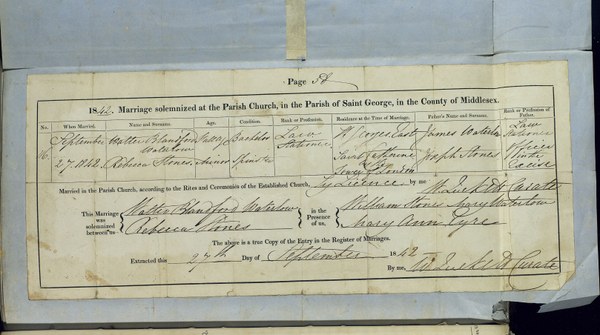 Page 58
1842. Marriage solemnized at the Parish Church, in the Parish of Saint George, in the County of Middlesex.
No. When Married. Name and Surname. Age. Condition. Rank or Profession. Residence at the Time of Marriage. Father's Name and Surname. Rank or Profession of Father.
September Walter Blandford Waterlow Bachelor Law Stationer St Georges East James Waterlow Law Stationer
27. 1842. Rebecca Stones Minor Spinster Saint Catherine Tower London Joseph Stones Officer Excise
Married in the Parish Church, according to the Rites and Ceremonies of the Established Church, by Licence by me, W. Quekett Curate
This Marriage was solemnized between us
Walter Blandford Waterlow
Rebecca Stones
in the Presence of us,
William Stones Mary Waterlow
Mary Ann Eyre
The above is a true Copy of the Entry in the Register of Marriages.
Extracted this 27th Day of September 1842
By me, W. Quekett Curate